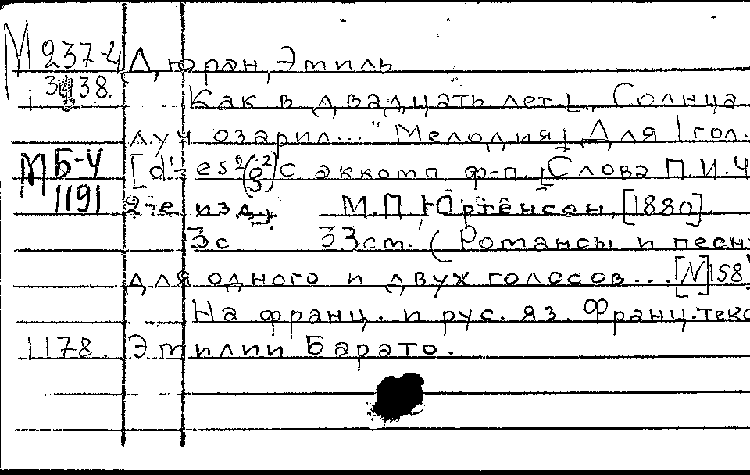 М 237-4 Дюран, Эмиль
3938. Как в двадцать лет [. Солнца
луч озарил..." Мелодия]. Для 1 гол.
М Б-4 [d¹-es² (g²)] с аккомп. ф-п. [Слова П.И.Ч
1191 2-е изд. М. П. Юргенсон, [1880].
3с 33см. (Романсы и песни
для одного и двух голосов... [N]158
На франц. и рус. яз. Франц. текс
1178. Эмилии Барато.